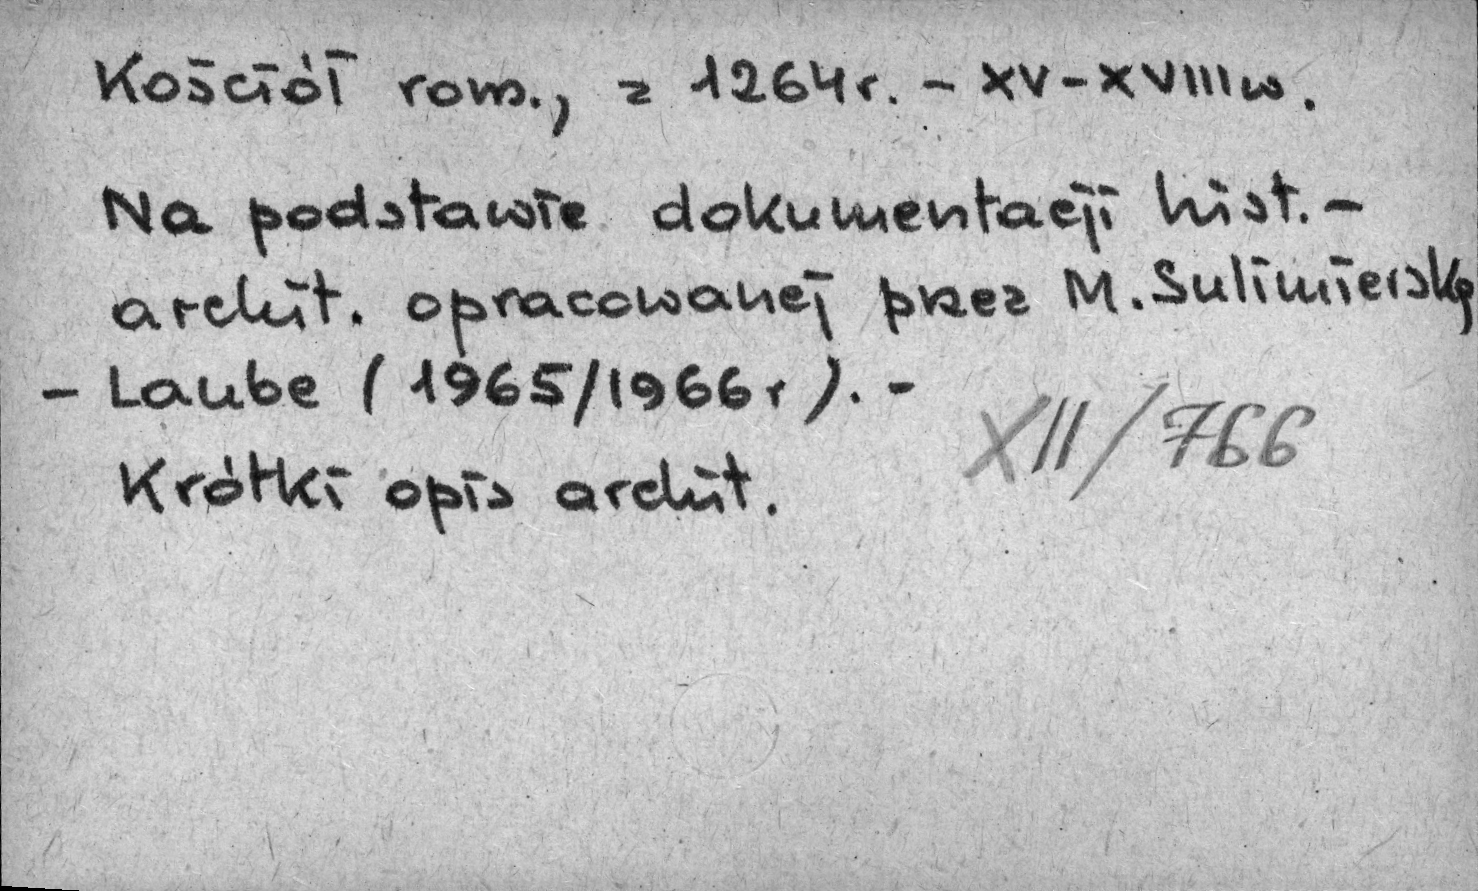 Kościół rom., z 1264r. - XV-XVIIIw.
Na podstawie dokumentacji hist.-
archit. opracowanej przez M. Sulimierską
- Laube (1965/1966r). -
XII/766
Krótki opis archit.